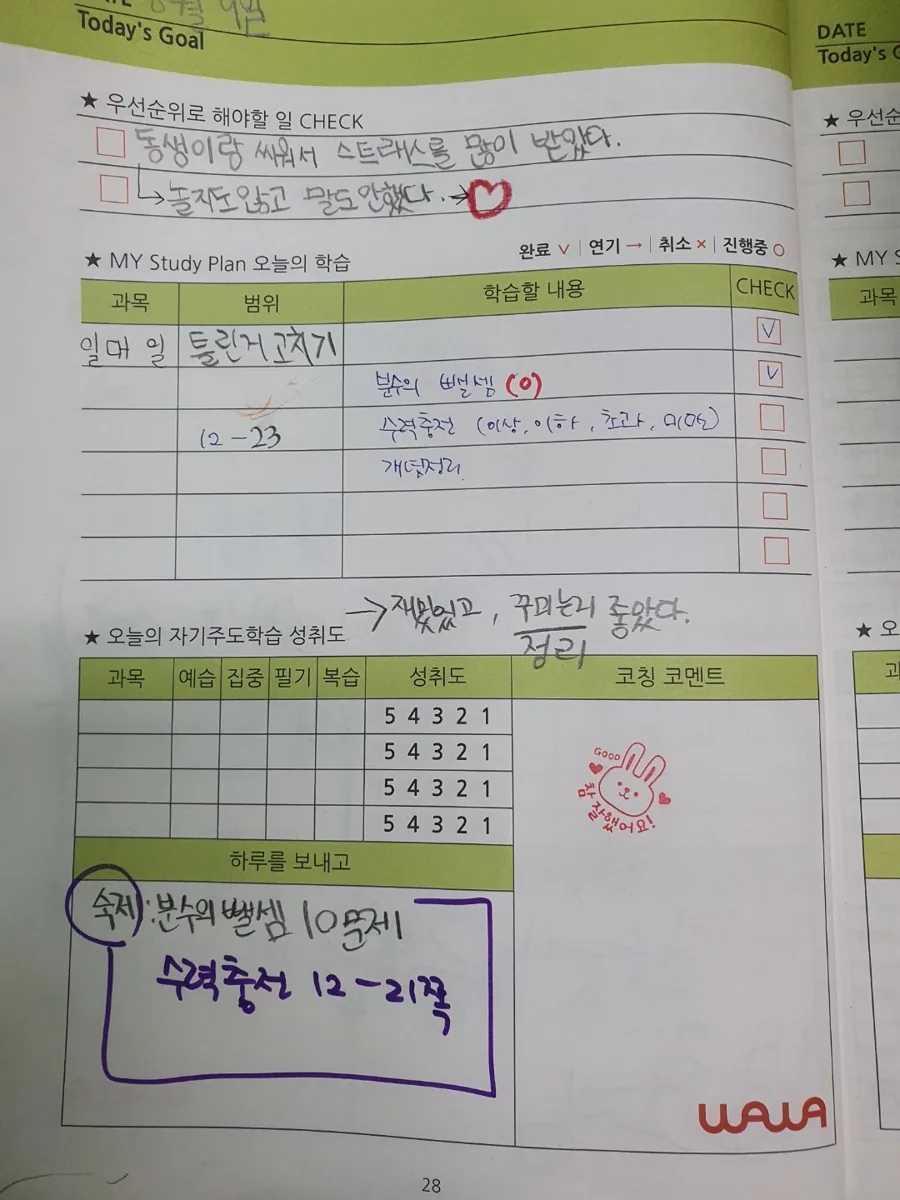 Today's Goal
DATE
Today's
★ 우선순위로 해야할 일 CHECK
동생이랑 싸워서 스트레스를 많이 받았다.
↳ 놀지도않고 말도안했다. → ♡
★ 우선순
★ MY Study Plan 오늘의 학습
완료 ∨ | 연기 → | 취소 × | 진행중 ○
★ MY S
과목 범위 학습할 내용 CHECK
과목
일매 일 틀린거고치기 ∨
분수의 뺄셈 (0) ∨
12 – 23 수력충전 (이상, 이하, 초과, 미만)
개념정리
→ 재밌있고, 꾸미는게 좋았다.
정리
★ 오늘의 자기주도학습 성취도
★ 오
과목 예습 집중 필기 복습 성취도 코칭 코멘트
5 4 3 2 1
5 4 3 2 1
5 4 3 2 1
5 4 3 2 1
GOOD
참 잘했어요!
하루를 보내고
숙제 : 분수의 뺄셈 10문제
수력충전 12 – 21쪽
WAWA
28